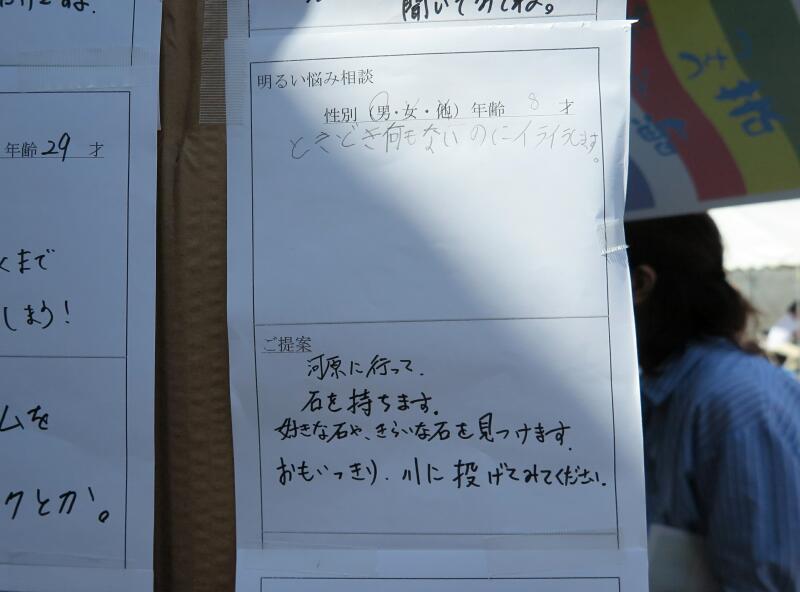 聞いてみてね。
年齢 29 才
くまで
しまう!
ムを
クとか。
明るい悩み相談
性別 (男・女・他) 年齢 8 才
ときどき何もないのにイライラします。
ご提案
河原に行って、
石を持ちます。
好きな石や、きらいな石を見つけます。
おもいっきり、川に投げてみてください。